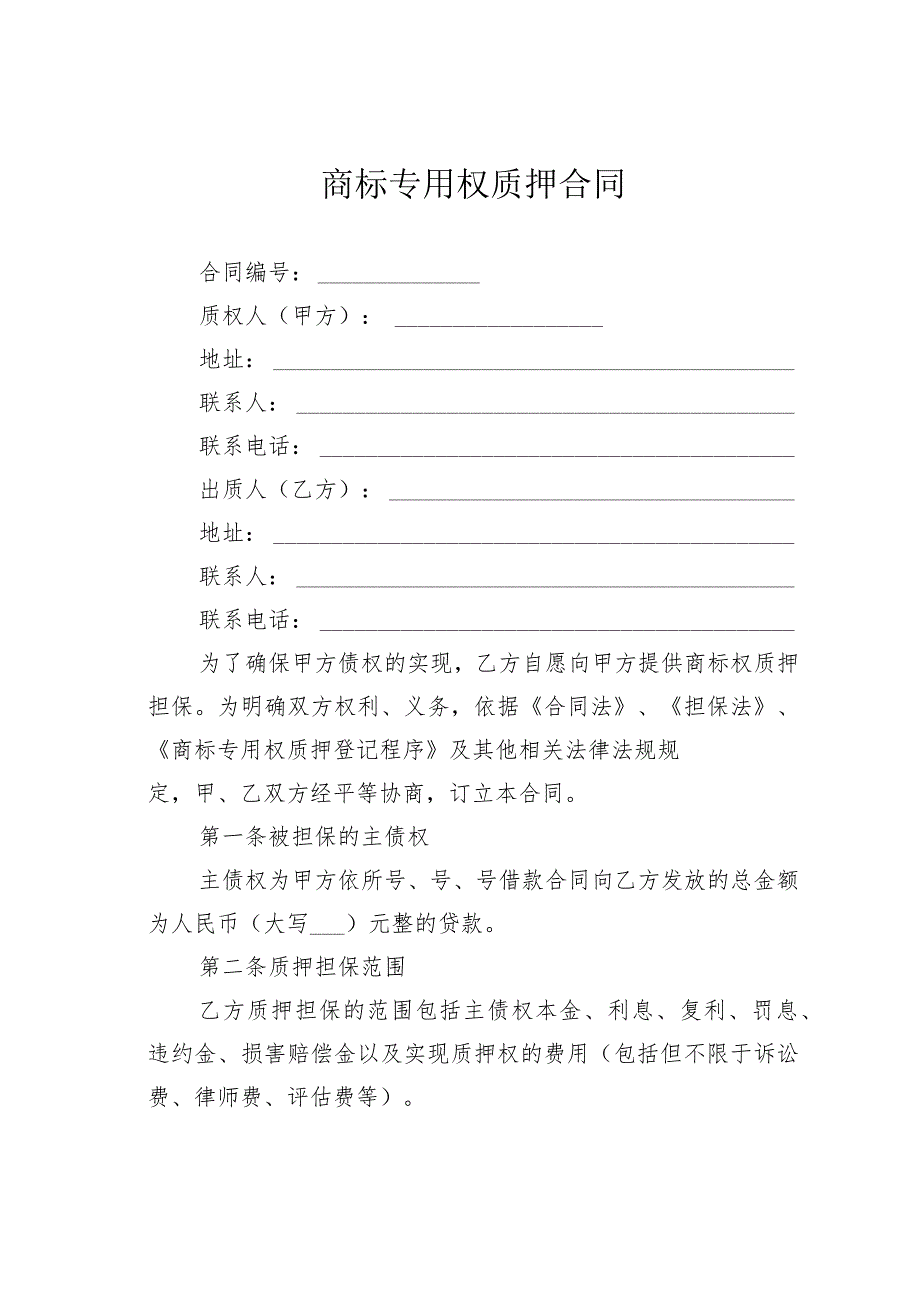 商标专用权质押合同
合同编号：______________
质权人（甲方）：__________________
地址：_____________________________________________
联系人：___________________________________________
联系电话：_________________________________________
出质人（乙方）：___________________________________
地址：_____________________________________________
联系人：___________________________________________
联系电话：_________________________________________
为了确保甲方债权的实现，乙方自愿向甲方提供商标权质押
担保。为明确双方权利、义务，依据《合同法》、《担保法》、
《商标专用权质押登记程序》及其他相关法律法规规
定，甲、乙双方经平等协商，订立本合同。
第一条被担保的主债权
主债权为甲方依所号、号、号借款合同向乙方发放的总金额
为人民币（大写___）元整的贷款。
第二条质押担保范围
乙方质押担保的范围包括主债权本金、利息、复利、罚息、
违约金、损害赔偿金以及实现质押权的费用（包括但不限于诉讼
费、律师费、评估费等）。